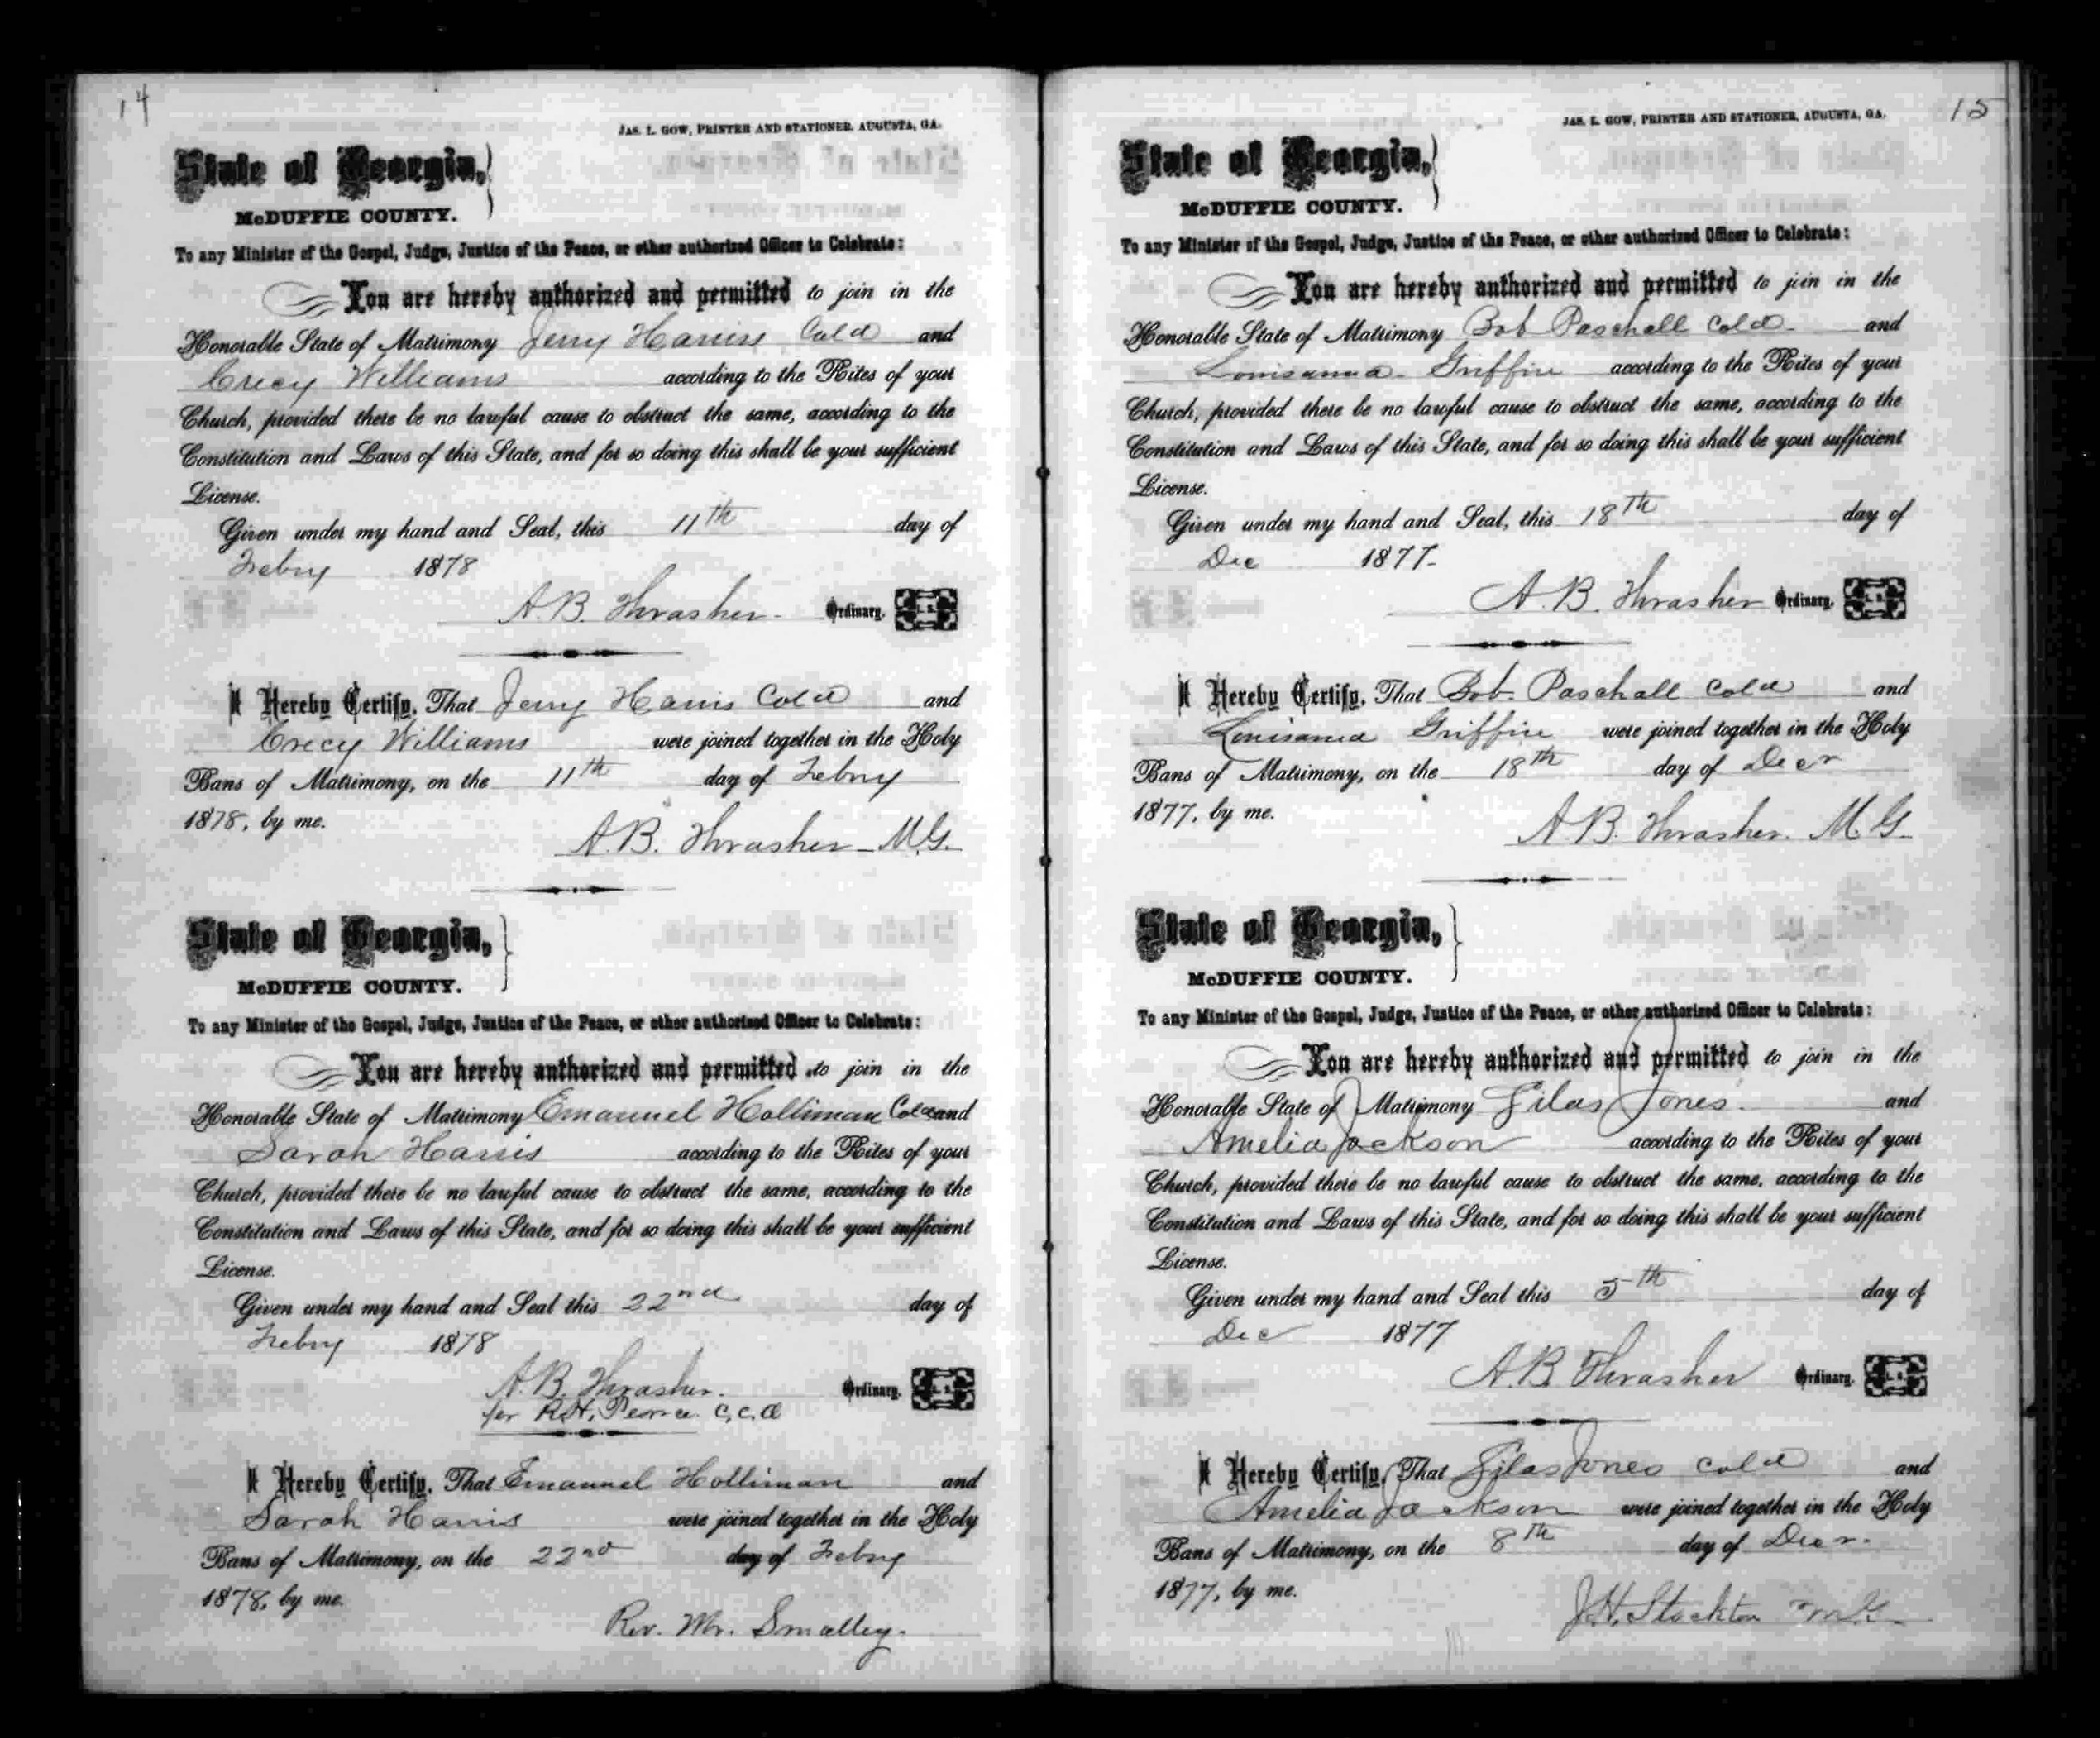 14
JAS. L. GOW, PRINTER AND STATIONER, AUGUSTA, GA.
State of Georgia,
McDUFFIE COUNTY.
To any Minister of the Gospel, Judge, Justice of the Peace, or other authorized Officer to Celebrate:
You are hereby authorized and permitted to join in the
Honorable State of Matrimony Jerry Harris Cold and
Crecy Williams according to the Rites of your
Church, provided there be no lawful cause to obstruct the same, according to the
Constitution and Laws of this State, and for so doing this shall be your sufficient
License.
Given under my hand and Seal, this 11th day of
Febry 1878
A.B. Thrasher. Ordinary. L.S.
I Hereby Certify, That Jerry Harris Cold and
Crecy Williams were joined together in the Holy
Bans of Matrimony, on the 11th day of Febry
1878, by me.
A.B. Thrasher - M.G.
State of Georgia,
McDUFFIE COUNTY.
To any Minister of the Gospel, Judge, Justice of the Peace, or other authorized Officer to Celebrate:
You are hereby authorized and permitted to join in the
Honorable State of Matrimony Emanuel Holliman Cold and
Sarah Harris according to the Rites of your
Church, provided there be no lawful cause to obstruct the same, according to the
Constitution and Laws of this State, and for so doing this shall be your sufficient
License.
Given under my hand and Seal this 22nd day of
Febry 1878
A.B. Thrasher. Ordinary. L.S.
per R.H. Pearce C.C.O
I Hereby Certify, That Emanuel Holliman and
Sarah Harris were joined together in the Holy
Bans of Matrimony, on the 22nd day of Febry
1878, by me.
Rev. Mr. Smalley.
15
JAS. L. GOW, PRINTER AND STATIONER, AUGUSTA, GA.
State of Georgia,
McDUFFIE COUNTY.
To any Minister of the Gospel, Judge, Justice of the Peace, or other authorized Officer to Celebrate:
You are hereby authorized and permitted to join in the
Honorable State of Matrimony Bob Paschall Cold. and
Louisanna Griffin according to the Rites of your
Church, provided there be no lawful cause to obstruct the same, according to the
Constitution and Laws of this State, and for so doing this shall be your sufficient
License.
Given under my hand and Seal, this 18th day of
Dec 1877.
A.B. Thrasher Ordinary. L.S.
I Hereby Certify, That Bob Paschall Cold and
Louisanna Griffin were joined together in the Holy
Bans of Matrimony, on the 18th day of Decr
1877, by me.
A.B. Thrasher. M.G.
State of Georgia,
McDUFFIE COUNTY.
To any Minister of the Gospel, Judge, Justice of the Peace, or other authorized Officer to Celebrate:
You are hereby authorized and permitted to join in the
Honorable State of Matrimony Silas Jones. and
Amelia Jackson according to the Rites of your
Church, provided there be no lawful cause to obstruct the same, according to the
Constitution and Laws of this State, and for so doing this shall be your sufficient
License.
Given under my hand and Seal this 5th day of
Dec 1877
A.B. Thrasher Ordinary. L.S.
I Hereby Certify, That Silas Jones Cold and
Amelia Jackson were joined together in the Holy
Bans of Matrimony, on the 8th day of Decr.
1877, by me.
J.H. Stockton M.G.